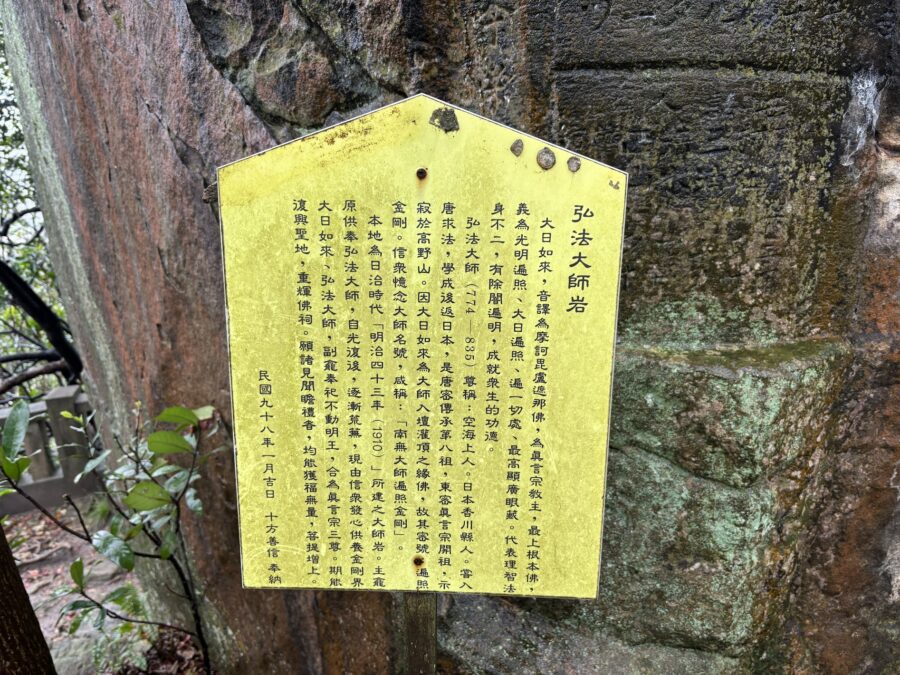 弘法大師岩
大日如來，音譯為摩訶毘盧遮那佛，為真言宗教主，最上根本佛，
義為光明遍照、大日遍照、遍一切處、最高顯廣眼藏。代表理智法
身不二，有除闇遍明，成就衆生的功德。
弘法大師（774—835）尊稱：空海上人。日本香川縣人。嘗入
唐求法，學成後返日本，是唐密傳承第八祖，東密真言宗開祖，示
寂於高野山。因大日如來為大師入壇灌頂之緣佛，故其密號—遍照
金剛。信衆憶念大師名號，咸稱：「南無大師遍照金剛」。
本地為日治時代「明治四十三年（1910）」所建之大師岩。主龕
原供奉弘法大師，自光復後，逐漸荒蕪，現由信衆發心供養金剛界
大日如來、弘法大師，副龕奉祀不動明王，合為真言宗三尊。期能
復興聖地，重輝佛祠。願諸見聞瞻禮者，均能獲福無量，菩提增上。
民國九十八年一月吉日　十方善信奉納